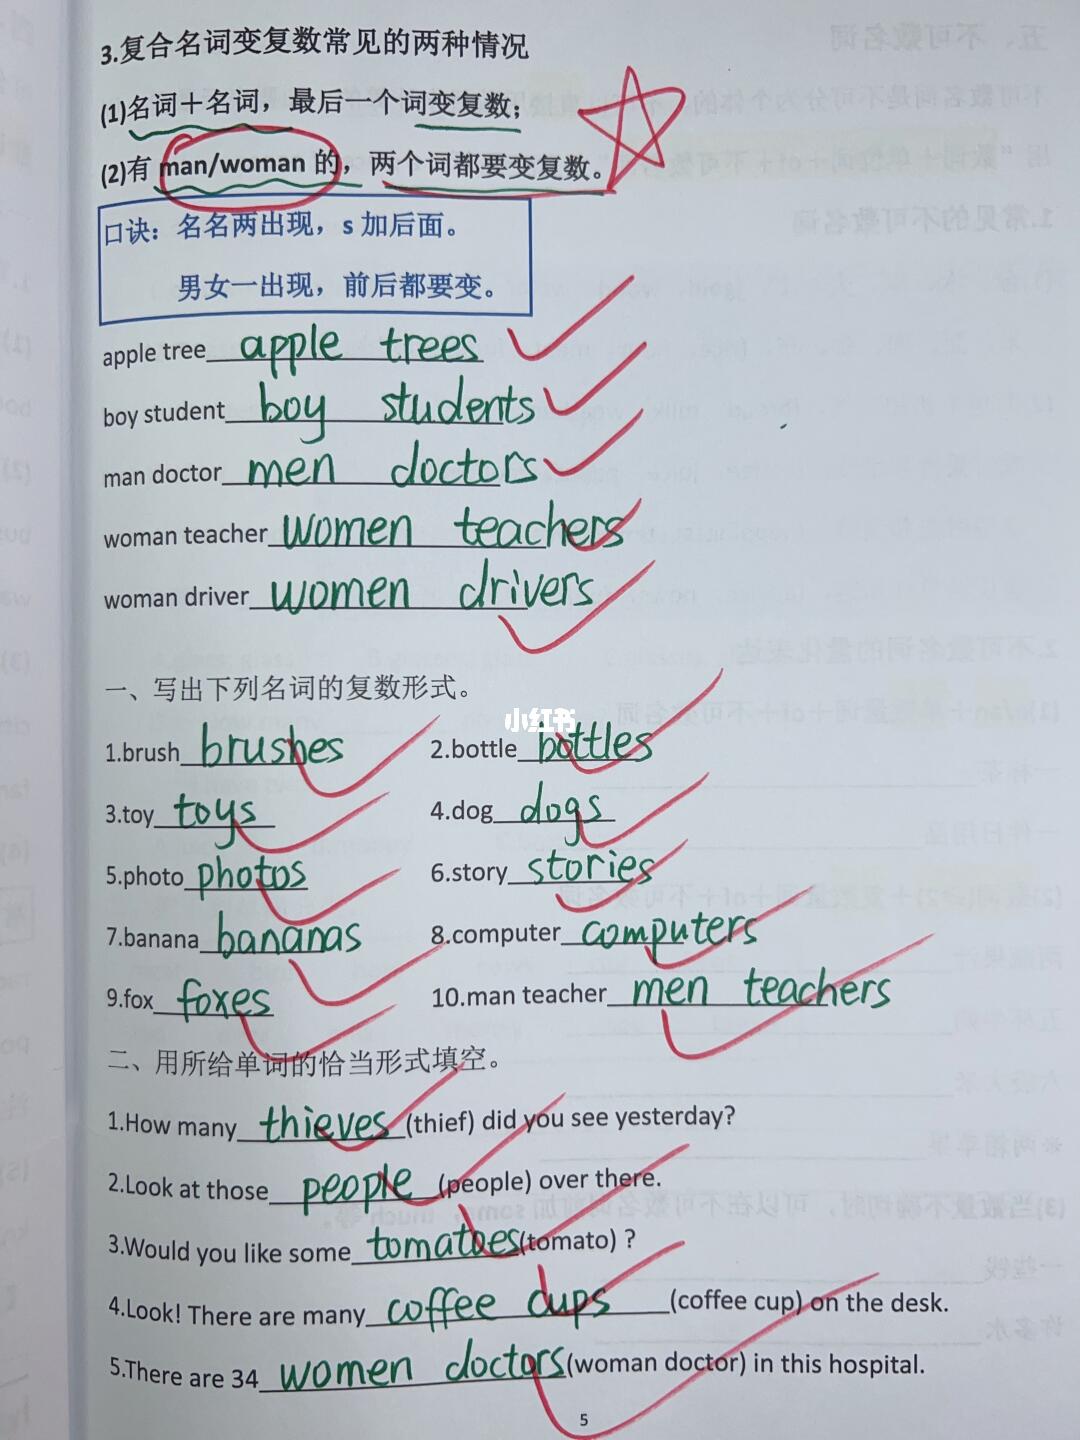 3.复合名词变复数常见的两种情况
(1)名词＋名词，最后一个词变复数；
(2)有 man/woman 的，两个词都要变复数。
口诀：名名两出现，s 加后面。
男女一出现，前后都要变。
apple tree apple trees
boy student boy students
man doctor men doctors
woman teacher women teachers
woman driver women drivers
一、写出下列名词的复数形式。
小红书
1.brush brushes 2.bottle bottles
3.toy toys 4.dog dogs
5.photo photos 6.story stories
7.banana bananas 8.computer computers
9.fox foxes 10.man teacher men teachers
二、用所给单词的恰当形式填空。
1.How many thieves (thief) did you see yesterday?
2.Look at those people (people) over there.
3.Would you like some tomatoes (tomato) ?
4.Look! There are many coffee cups (coffee cup) on the desk.
5.There are 34 women doctors (woman doctor) in this hospital.
5